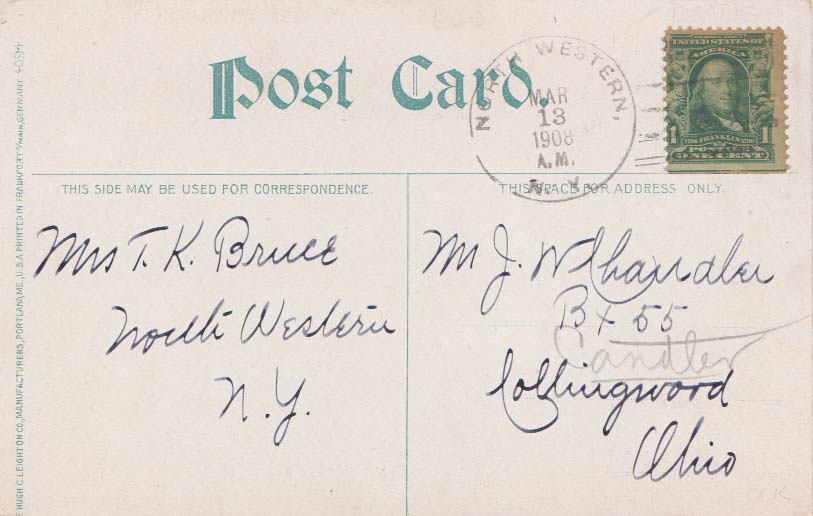 Post Card.
NORTH WESTERN,
MAR
13
1908
A.M.
N. Y.
SERIES 1902
UNITED STATES OF
AMERICA
1 FRANKLIN 1
POSTAGE
ONE CENT
THIS SIDE MAY BE USED FOR CORRESPONDENCE.
THIS SPACE FOR ADDRESS ONLY.
Mrs T. K. Bruce
North Western
N.Y.
Mr J. W Chandler
Bx 55
Candler
Collingwood
Ohio
HUGH C LEIGHTON CO., MANUFACTURERS, PORTLAND, ME., U.S.A PRINTED IN FRANKFORT %MAIN, GERMANY